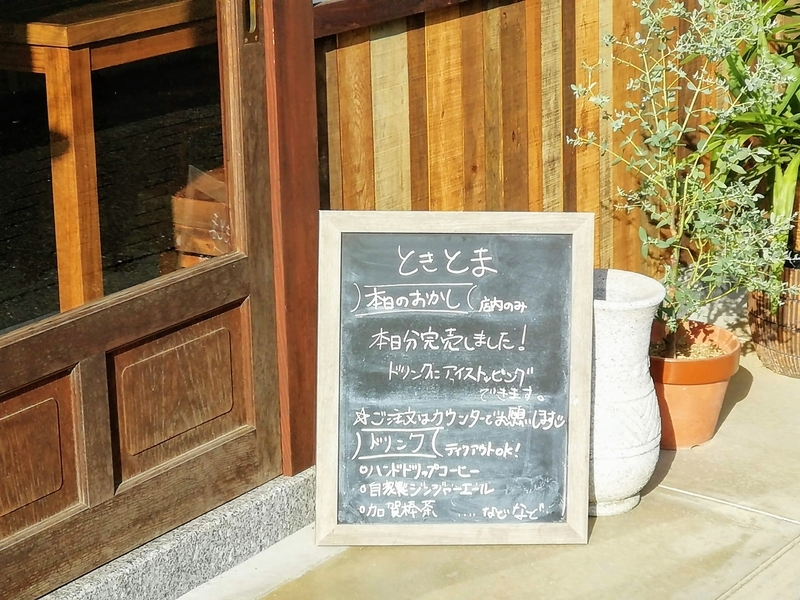 ときとま
本日のおかし 店内のみ
本日分完売しました!
ドリンクにアイストッピング
できます。
☆ご注文はカウンターでお願いします
ドリンク テイクアウトok!
○ハンドドリップコーヒー
○自家製ジンジャーエール
○加賀棒茶 ....などなど